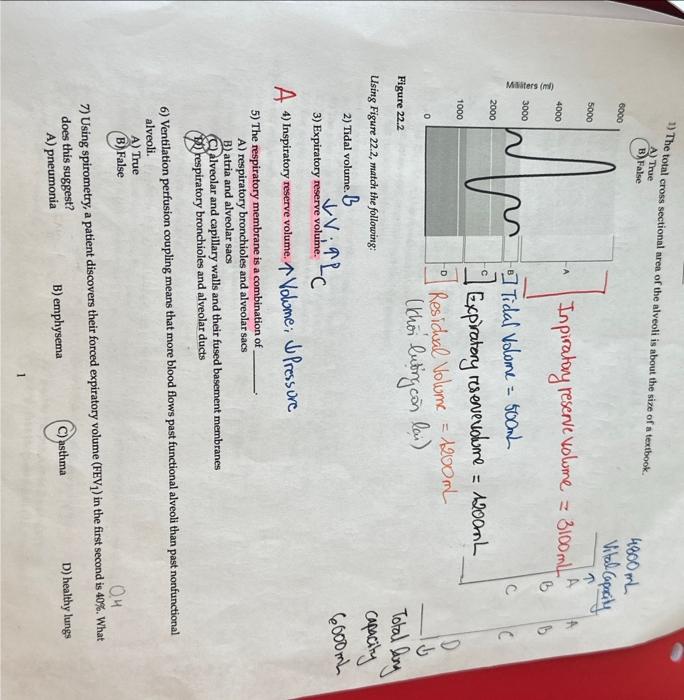 1) The total cross sectional area of the alveoli is about the size of a textbook.
A) True
B) False
6000
5000
4000
3000
2000
1000
0
Milliliters (ml)
A
B
C
D
Inpiratory reserve volume = 3100mL
Tidal Volome = 500mL
Expiratory reserve volume = 1200mL
Residual Volume = 1200mL
(khối lượng còn lại)
4800 mL
Vital Capacity
A
B
C
A
B
C
D
Total lung
capacity
6000mL
Figure 22.2
Using Figure 22.2, match the following:
2) Tidal volume. B
3) Expiratory reserve volume. C
↓V; ↑P
A 4) Inspiratory reserve volume. ↑ Volume; ↓ Pressure
5) The respiratory membrane is a combination of ________.
A) respiratory bronchioles and alveolar sacs
B) atria and alveolar sacs
C) alveolar and capillary walls and their fused basement membranes
D) respiratory bronchioles and alveolar ducts
6) Ventilation perfusion coupling means that more blood flows past functional alveoli than past nonfunctional
alveoli.
A) True
B) False
7) Using spirometry, a patient discovers their forced expiratory volume (FEV1) in the first second is 40%. What
does this suggest?
A) pneumonia B) emphysema C) asthma D) healthy lungs
1